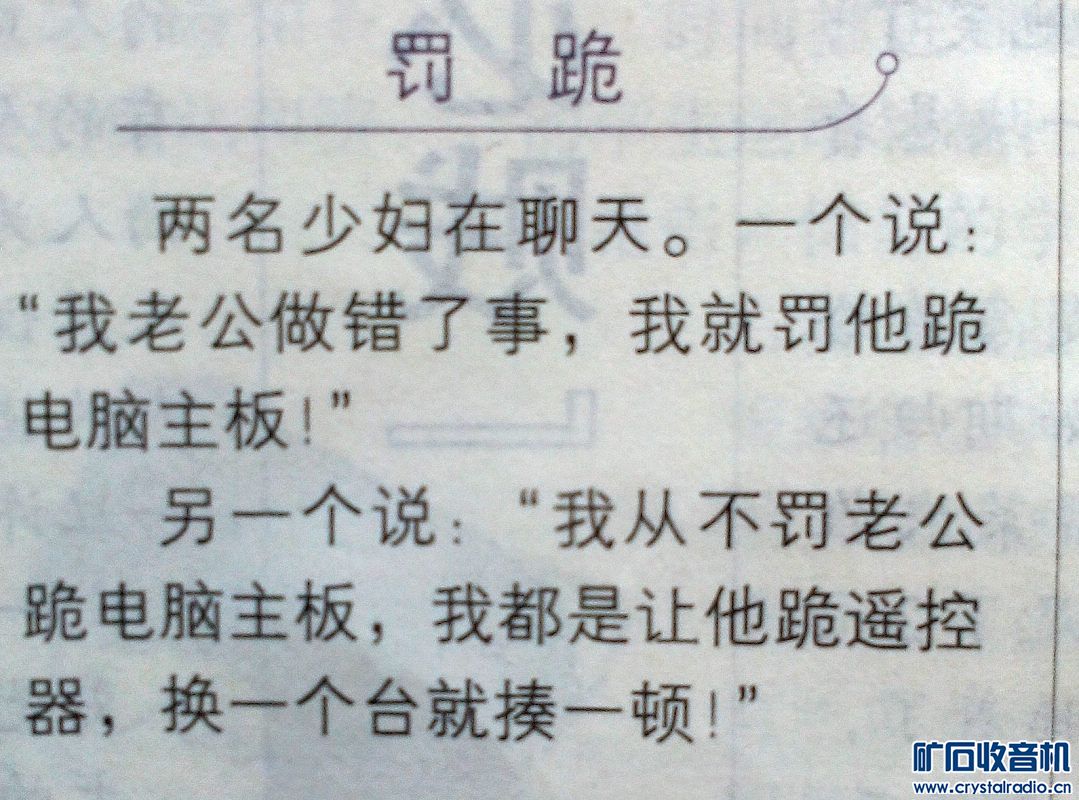 罚 跪
两名少妇在聊天。一个说：
“我老公做错了事，我就罚他跪
电脑主板！”
另一个说：“我从不罚老公
跪电脑主板，我都是让他跪遥控
器，换一个台就揍一顿！”
矿石收音机
www.crystalradio.cn